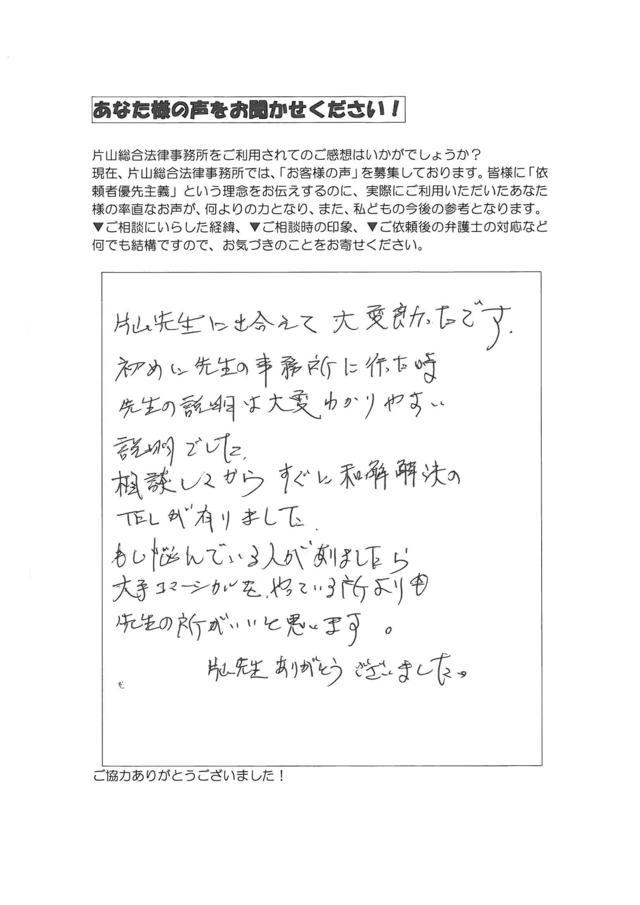 あなた様の声をお聞かせください！
片山総合法律事務所をご利用されてのご感想はいかがでしょうか？
現在、片山総合法律事務所では、「お客様の声」を募集しております。皆様に「依
頼者優先主義」という理念をお伝えするのに、実際にご利用いただいたあなた
様の率直なお声が、何よりの力となり、また、私どもの今後の参考となります。
▼ご相談にいらした経緯、▼ご相談時の印象、▼ご依頼後の弁護士の対応など
何でも結構ですので、お気づきのことをお寄せください。
片山先生に出会えて大変助かったです.
初めに先生の事務所に行った時
先生の説明は大変わかりやすい
説明でした.
相談してからすぐに和解解決の
TELが有りました.
もし悩んでいる人が有りましたら
大手コマーシャルを、やっている所よりも
先生の所がいいと思います。
片山先生ありがとうございました。
ご協力ありがとうございました！